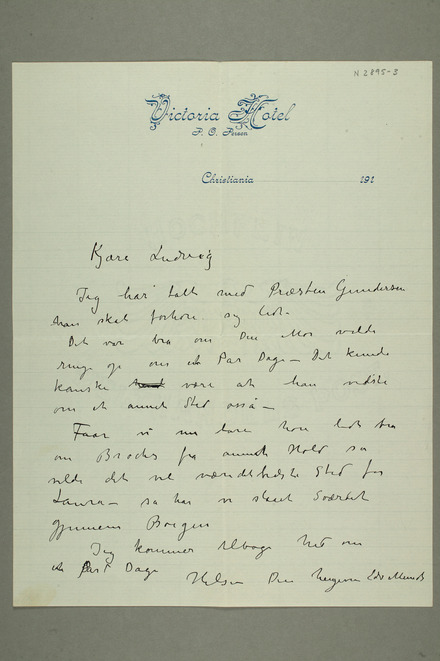 N 2895-3
Victoria Hotel
P. O. Person
Christiania 191
Kjære Ludvig
Jeg har talt med Præsten Gundersen
han skal forhøre sig lidt.
Det var bra om Din Mor vilde
ringe op om et Par Dage – Det kunde
kanske være at han vidste
om et annet Sted osså –
Faar vi nu bare høre lidt bra
om fra annet Hold så
vilde det vel være bedste Sted for
Laura – så har vi Sværdet
gjennem Borgen
Jeg kommer tilbage hid om
et Par Dage
Hilsen Din hengivne Edv Munch